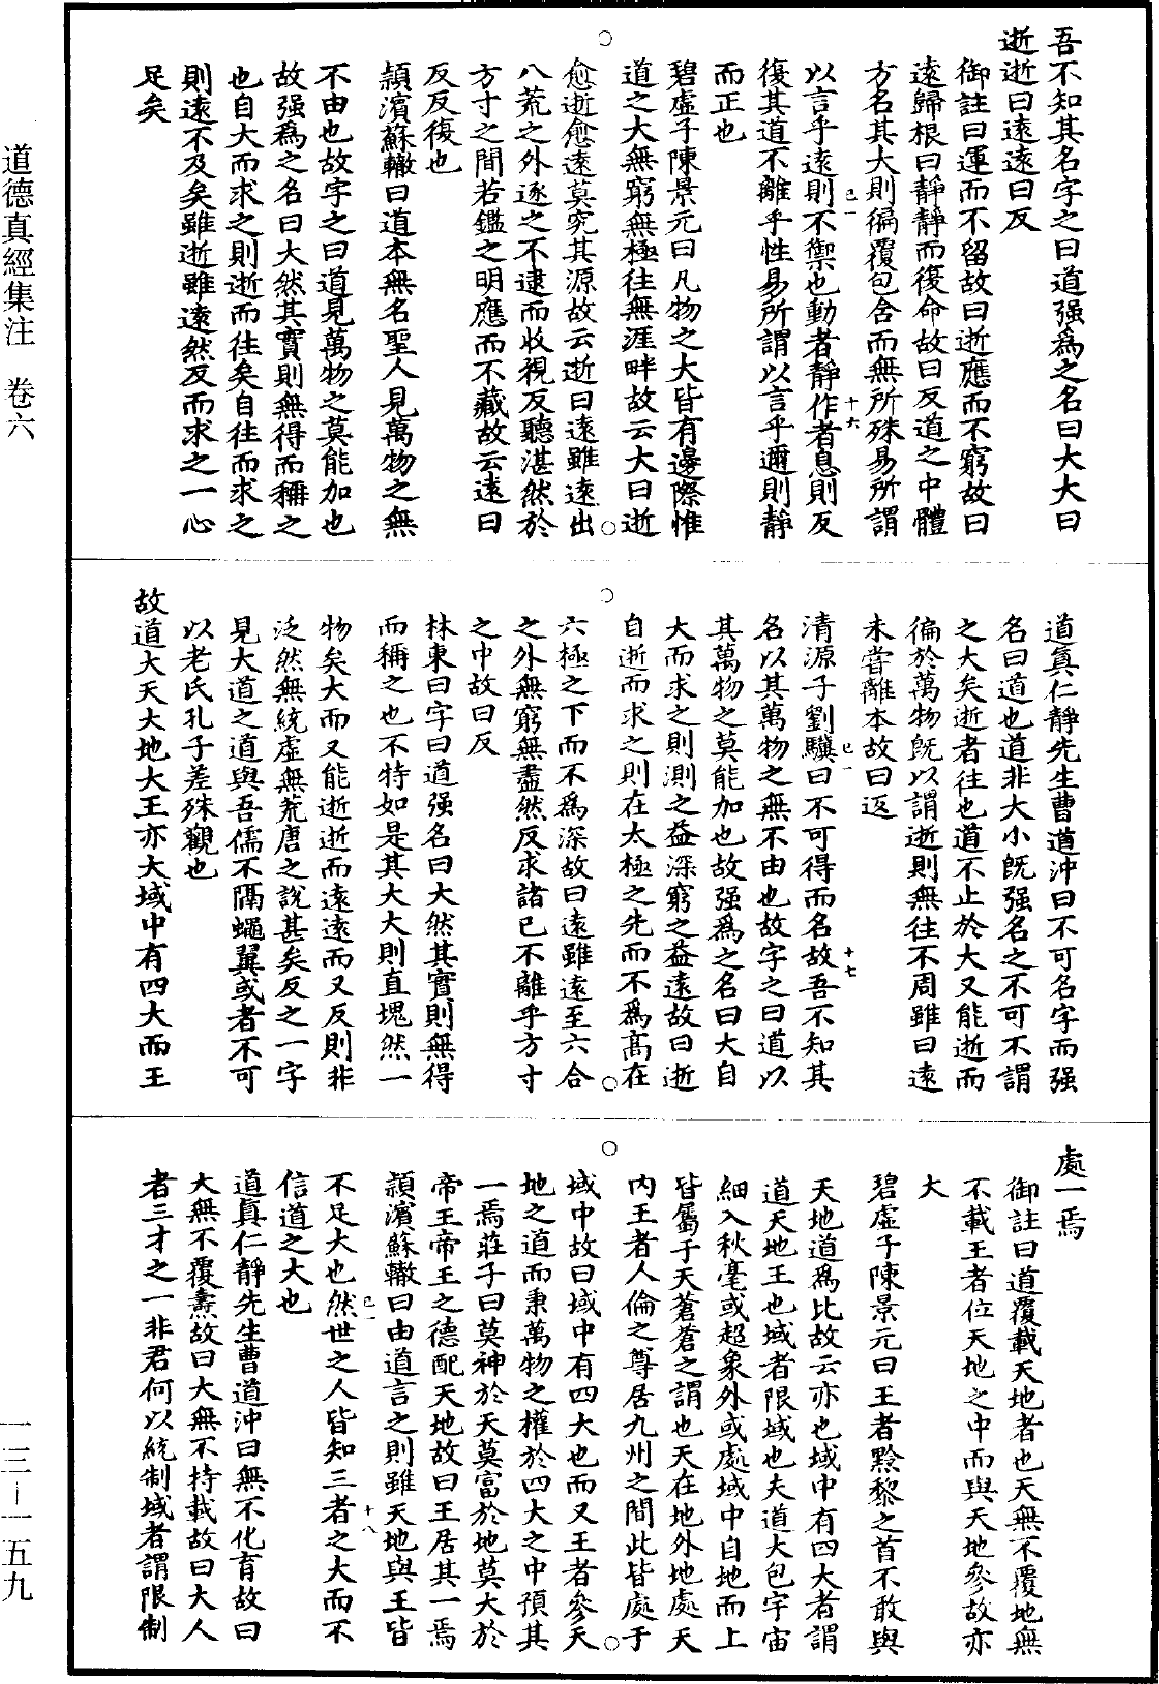 吾不知其名字之曰道强爲之名曰大大曰
逝逝曰遠遠曰反
御註曰運而不留故曰逝應而不窮故曰
遠歸根曰靜靜而復命故曰反道之中體
方名其大則徧覆包舍而無所殊易所謂
以言乎遠則不禦也動者靜作者息則反
復其道不離乎性易所謂以言乎邇則靜
而正也
碧虛子陳景元曰凡物之大皆有邊際惟
道之大無窮無極往無涯畔故云大曰逝
愈逝愈遠莫究其源故云逝曰遠雖遠出
八荒之外逐之不逮而收視反聽湛然於
方寸之間若鑑之明應而不藏故云遠曰
反反復也
頴濱蘇轍曰道本無名聖人見萬物之無
不由也故字之曰道見萬物之莫能加也
故强爲之名曰大然其實則無得而稱之
也自大而求之則逝而往矣自往而求之
則遠不及矣雖逝雖遠然反而求之一心
足矣
道真仁靜先生曹道沖曰不可名字而强
名曰道也道非大小旣强名之不可不謂
之大矣逝者往也道不止於大又能逝而
徧於萬物旣以謂逝則無往不周雖曰遠
未嘗離本故曰返
清源子劉驥曰不可得而名故吾不知其
名以其萬物之無不由也故字之曰道以
其萬物之莫能加也故强爲之名曰大自
大而求之則測之益深窮之益遠故曰逝
自逝而求之則在太極之先而不爲高在
六極之下而不爲深故曰遠雖遠至六合
之外無窮無盡然反求諸己不離乎方寸
之中故曰反
林東曰字曰道强名曰大然其實則無得
而稱之也不特如是其大大則直塊然一
物矣大而又能逝逝而遠遠而又反則非
泛然無統虛無荒唐之說甚矣反之一字
見大道之道與吾儒不隔蠅翼或者不可
以老氏孔子差殊觀也
故道大天大地大王亦大域中有四大而王
處一焉
御註曰道覆載天地者也天無不覆地無
不載王者位天地之中而與天地參故亦
大
碧虛子陳景元曰王者黔黎之首不敢與
天地道爲比故云亦也域中有四大者謂
道天地王也域者限域也夫道大包宇宙
細入秋毫或超象外或處域中自地而上
皆屬于天蒼蒼之謂也天在地外地處天
内王者人倫之尊居九州之間此皆處于
域中故曰域中有四大也而又王者參天
地之道而秉萬物之權於四大之中預其
一焉莊子曰莫神於天莫富於地莫大於
帝王帝王之德配天地故曰王居其一焉
頴濱蘇轍曰由道言之則雖天地與王皆
不足大也然世之人皆知三者之大而不
信道之大也
道真仁靜先生曹道沖曰無不化育故曰
大無不覆燾故曰大無不持載故曰大人
者三才之一非君何以統制域者謂限制
己一
十六
己一
十七
己一
十八
道德真經集注 卷六
一三－一五九